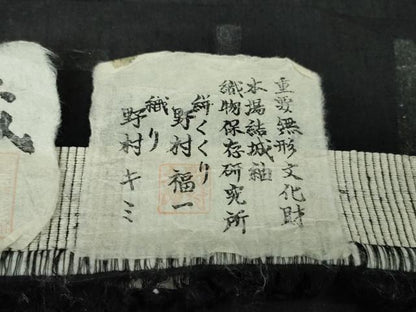 重要無形文化財
本場結城紬
織物保存研究所
絣くくり
野村福一
織り
野村キミ